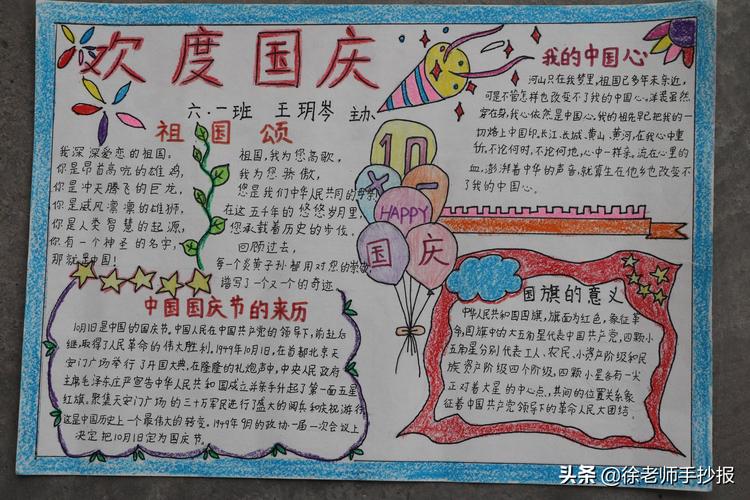 欢度国庆
六.一班 王玥岑 主办
祖国颂
我深深爱恋的祖国。
你是昂首高吭的雄鸡,
你是冲天腾飞的巨龙,
你是威风凛凛的雄狮,
你是人类智慧的起源,
你有一个神圣的名字,
那就是中国!
祖国,我为您高歌,
我为您骄傲,
您是我们中华人民共同的母亲
在这五千年的悠悠岁月里,
您承载着历史的步伐。
回顾过去,
每一个炎黄子孙都用对您的崇敬
谱写了一个又一个的奇迹
我的中国心
河山只在我梦里,祖国已多年未亲近,
可是不管怎样也改变不了我的中国心。洋装虽然
穿在身,我心依然是中国心,我的祖先早已把我的一
切烙上中国印。长江、长城、黄山、黄河,在我心中重千
斤,不论何时,不论何地,心中一样亲。流在心里的
血,澎湃着中华的声音,就算生在他乡也改变不
了我的中国心。
10
×
一
HAPPY
国庆
中国国庆节的来历
10月1日是中国的国庆节。中国人民在中国共产党的领导下,前赴后
继,取得了人民革命的伟大胜利。1949年10月1日,在首都北京天
安门广场举行了开国大典,在隆隆的礼炮声中,中央人民政府
主席毛泽东庄严宣告中华人民共和国成立并亲手升起了第一面五星
红旗。聚集天安门广场的三十万军民进行了盛大的阅兵和庆祝游行
这是中国历史上一个最伟大的转变。1949年9月的政协一届一次会议上
决定把10月1日定为国庆节。
国旗的意义
中华人民共和国国旗,旗面为红色,象征革
命,国旗中的大五角星代表中国共产党,四颗小
五角星分别代表工人、农民、小资产阶级和民
族资产阶级四个阶级,四颗小星各有一尖
正对着大星的中心点,其间的位置关系象
征着中国共产党领导下的革命人民大团结.
头条 @徐老师手抄报